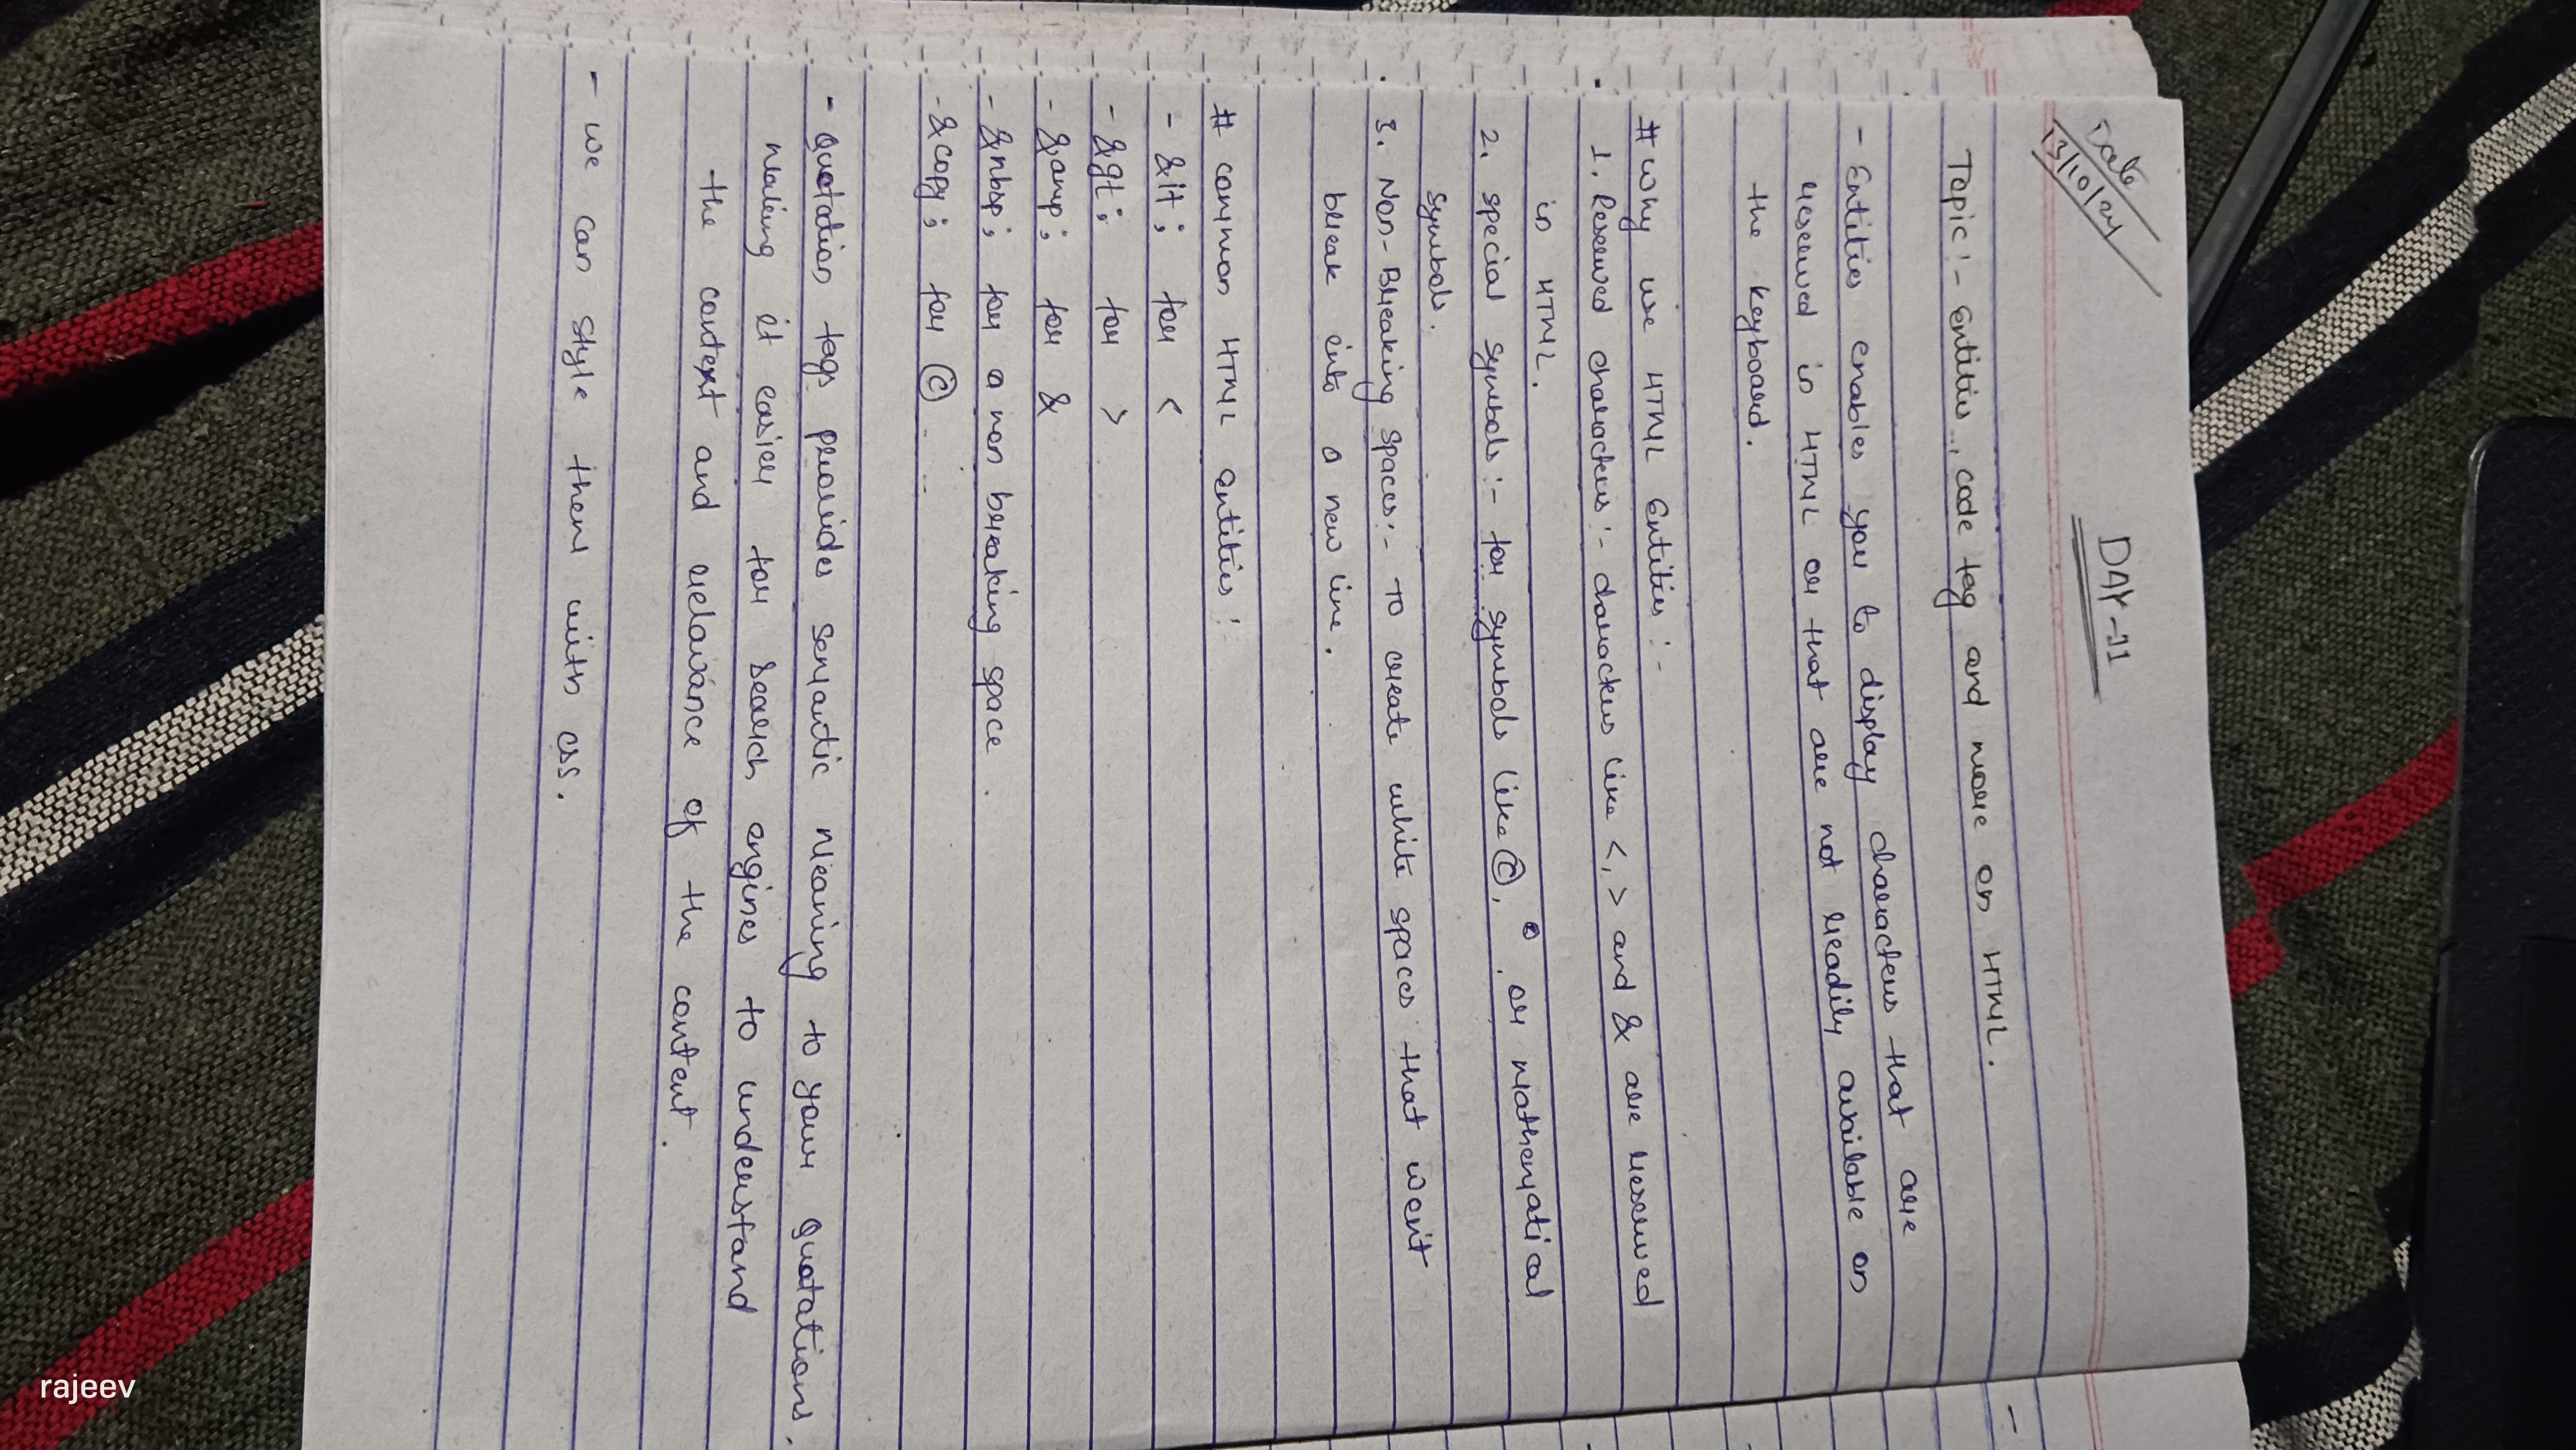 Date
13/10/24
DAY-11
Topic:- Entities, code tag and more on HTML.
- Entities enables you to display characters that are
reserved in HTML or that are not readily available on
the keyboard.
# Why use HTML Entities:-
1. Reserved characters:- characters like <, > and & are reserved
in HTML.
2. special symbols:- for symbols like ©, , or mathematical
symbols.
3. Non-Breaking Spaces:- To create white spaces that won't
break into a new line.
# common HTML entities:
- &lt; for <
- &gt; for >
- &amp; for &
- &nbsp; for a non breaking space.
- &copy; for ©
- Quotation tags provides semantic meaning to your Quotations.
Making it easier for search engines to understand
the context and relavance of the content.
- we can style them with css.
rajeev